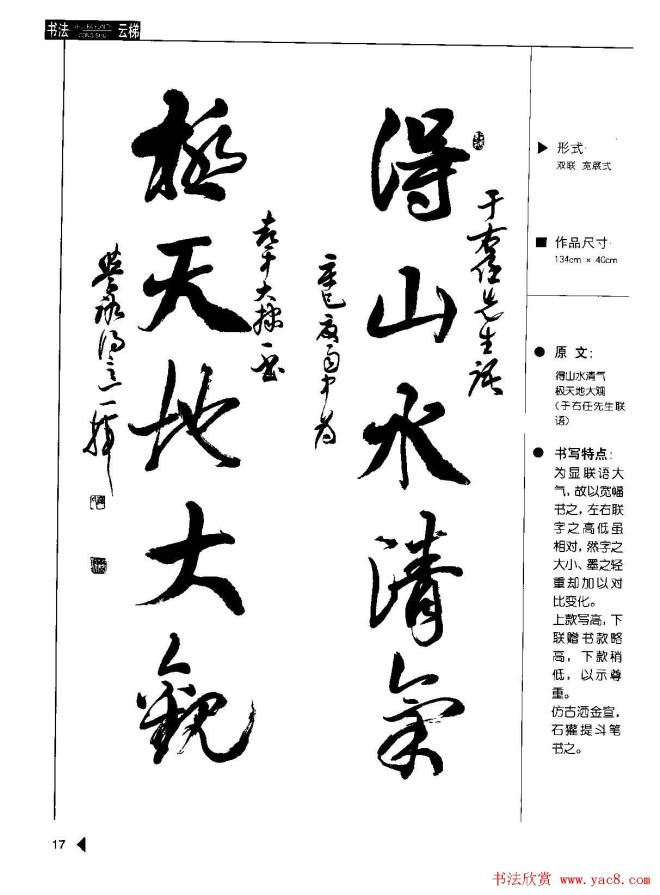 书法 云梯
得山水清氣
于右任先生語
辛巳夏雨中為
極天地大觀
▶ 形式:
双联 宽展式
■ 作品尺寸:
134cm × 40cm
● 原文:
得山水清气
极天地大观
(于右任先生联
语)
● 书写特点:
为显联语大
气,故以宽幅
书之,左右联
字之高低虽
相对,然字之
大小、墨之轻
重却加以对
比变化。
上款写高,下
联赠书款略
高,下款稍
低,以示尊
重。
仿古洒金宣,
石獾提斗笔
书之。
17
书法欣赏 www.yac8.com